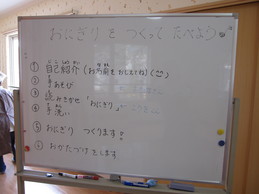 おにぎりをつくってたべよう
① 自己紹介(お名前をおしえてね)
② 手あそび
③ 読みきかせ「おにぎり」
④ 手洗い
⑤ おにぎり つくります!!
⑥ おかたづけをします